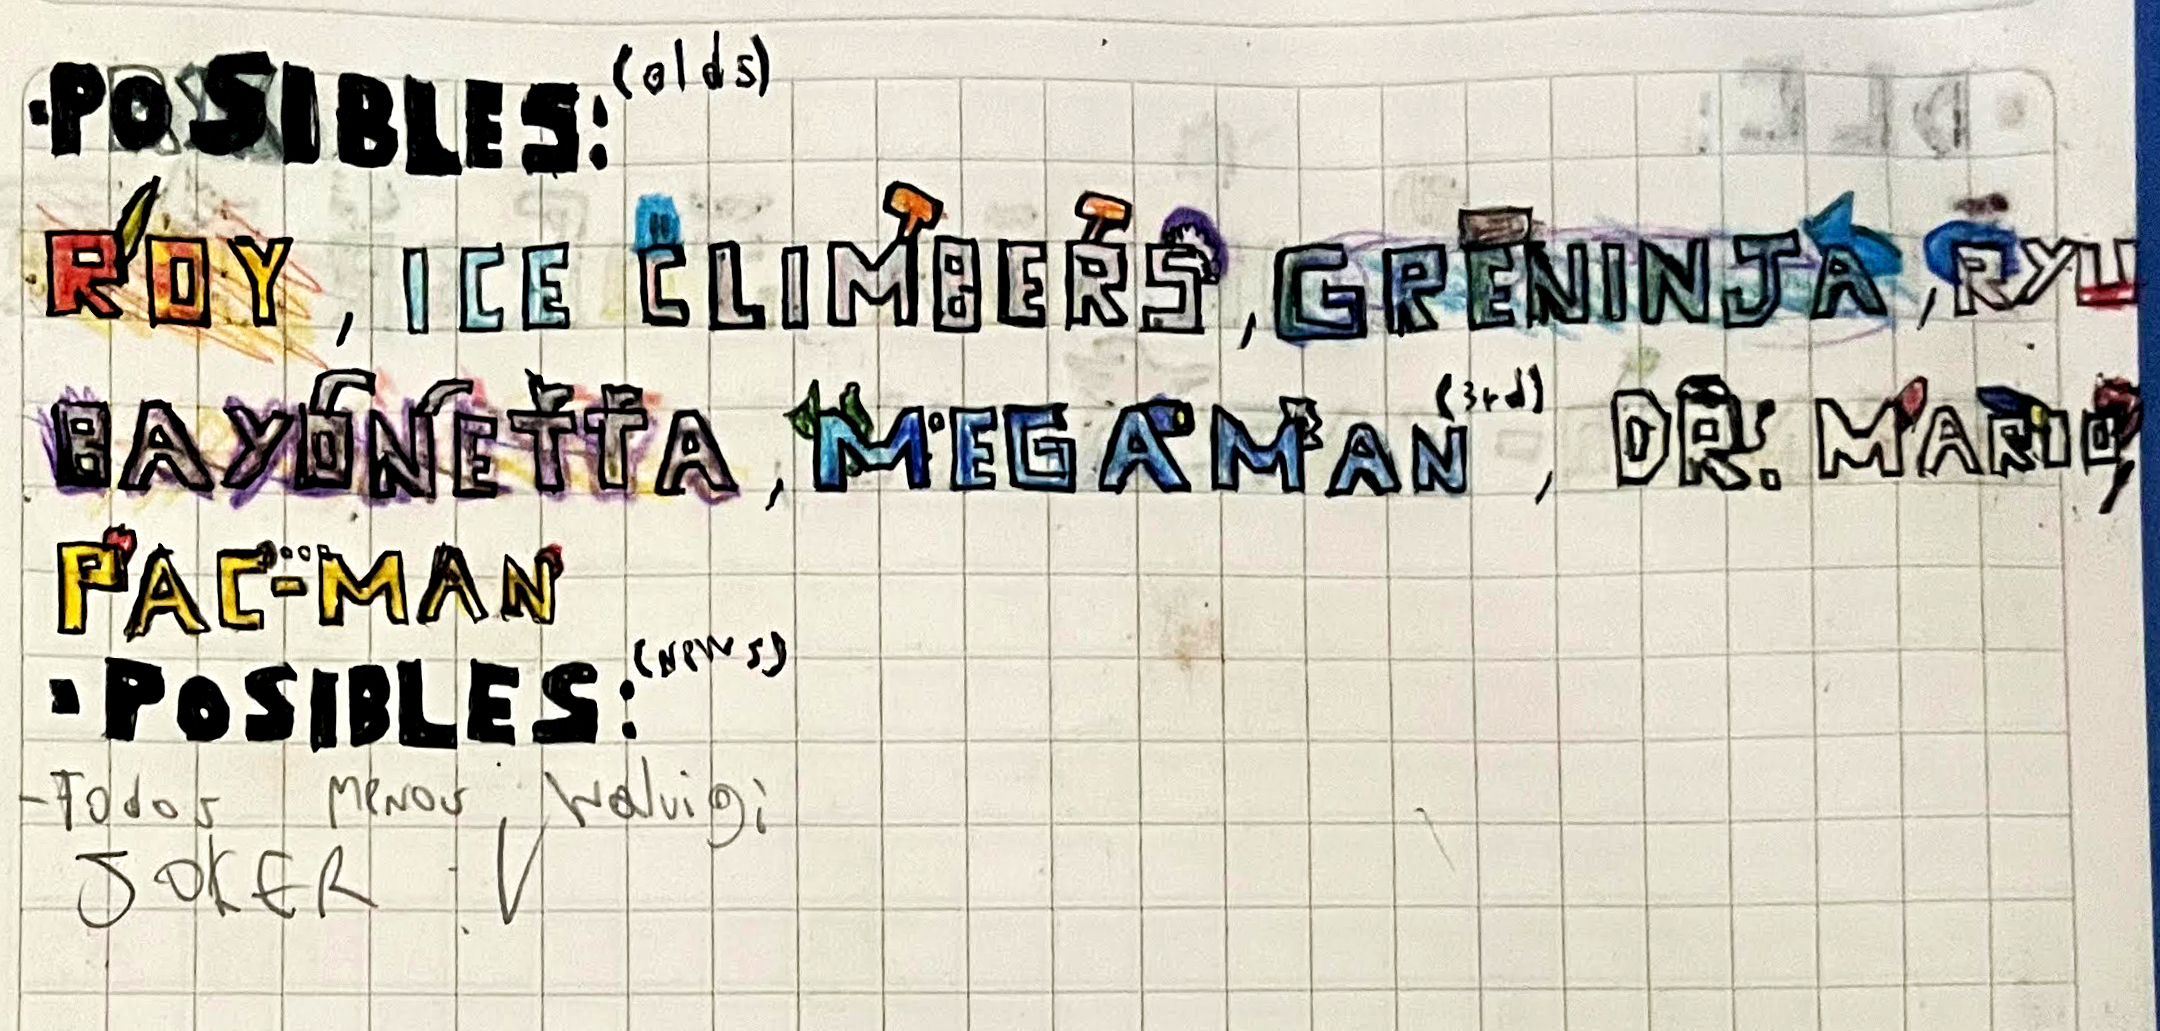 ·POSIBLES: (olds)
ROY, ICE CLIMBERS, GRENINJA, RYU
BAYONETTA, MEGAMAN (3rd), DR. MARIO,
PAC-MAN
· POSIBLES: (news)
-Todos menos Waluigi
JOKER :V